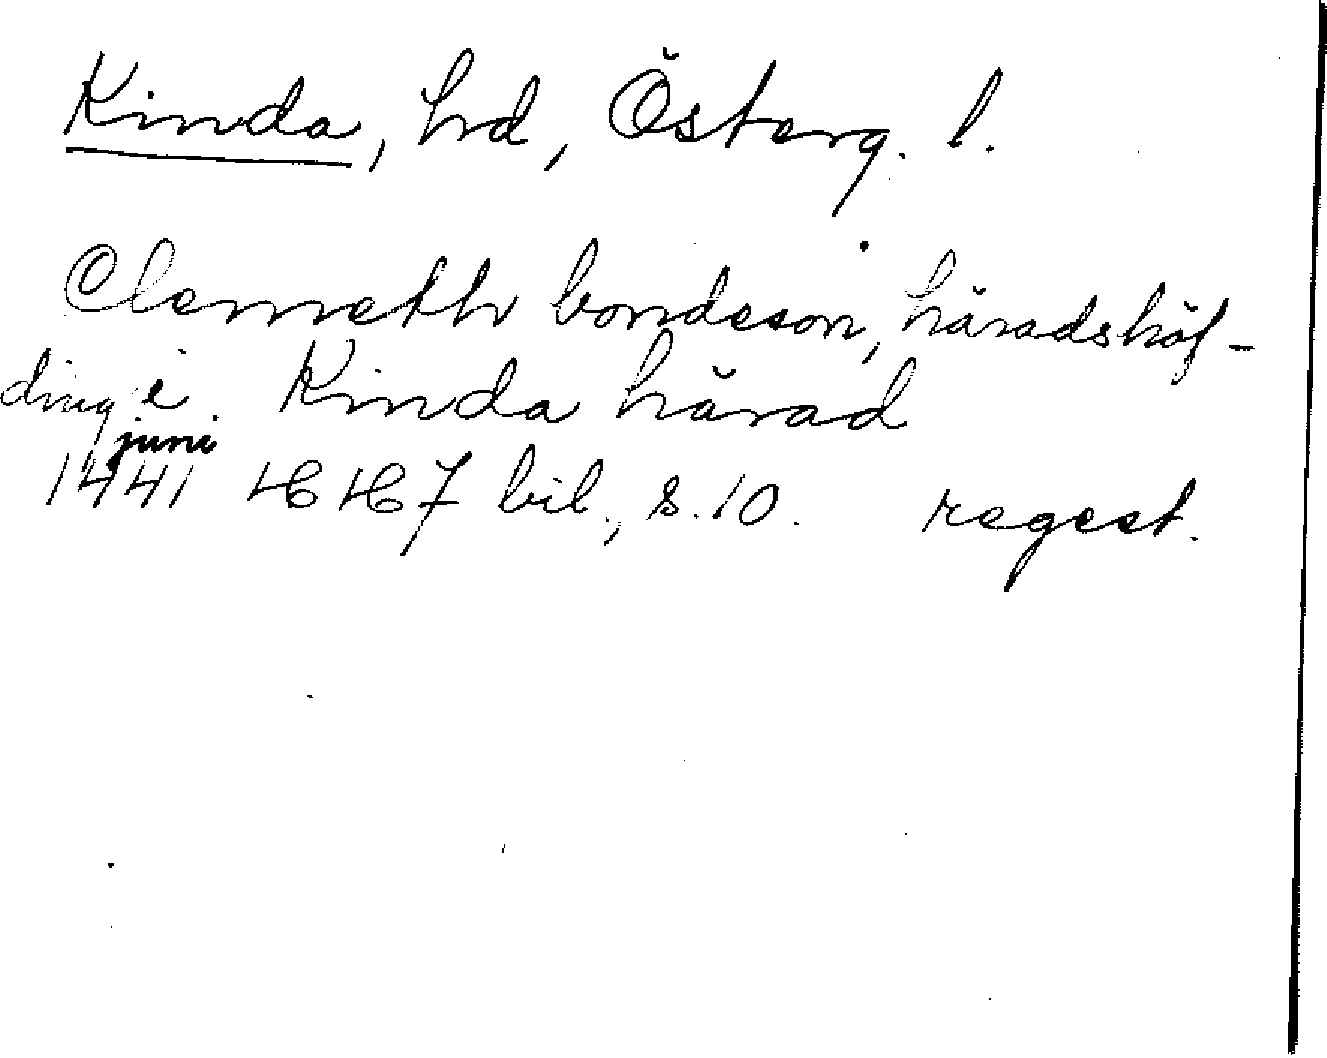 Kinda, hrd, Österg. l.
Clemeth bondeson, häradshöf-
ding i Kinda härad
juni
1441 HH 7 bil., s. 10. regest.